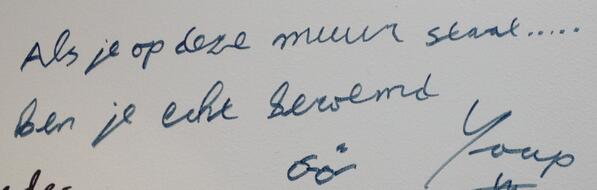 Als je op deze muur staat.....
Ben je echt beroemd
Youp